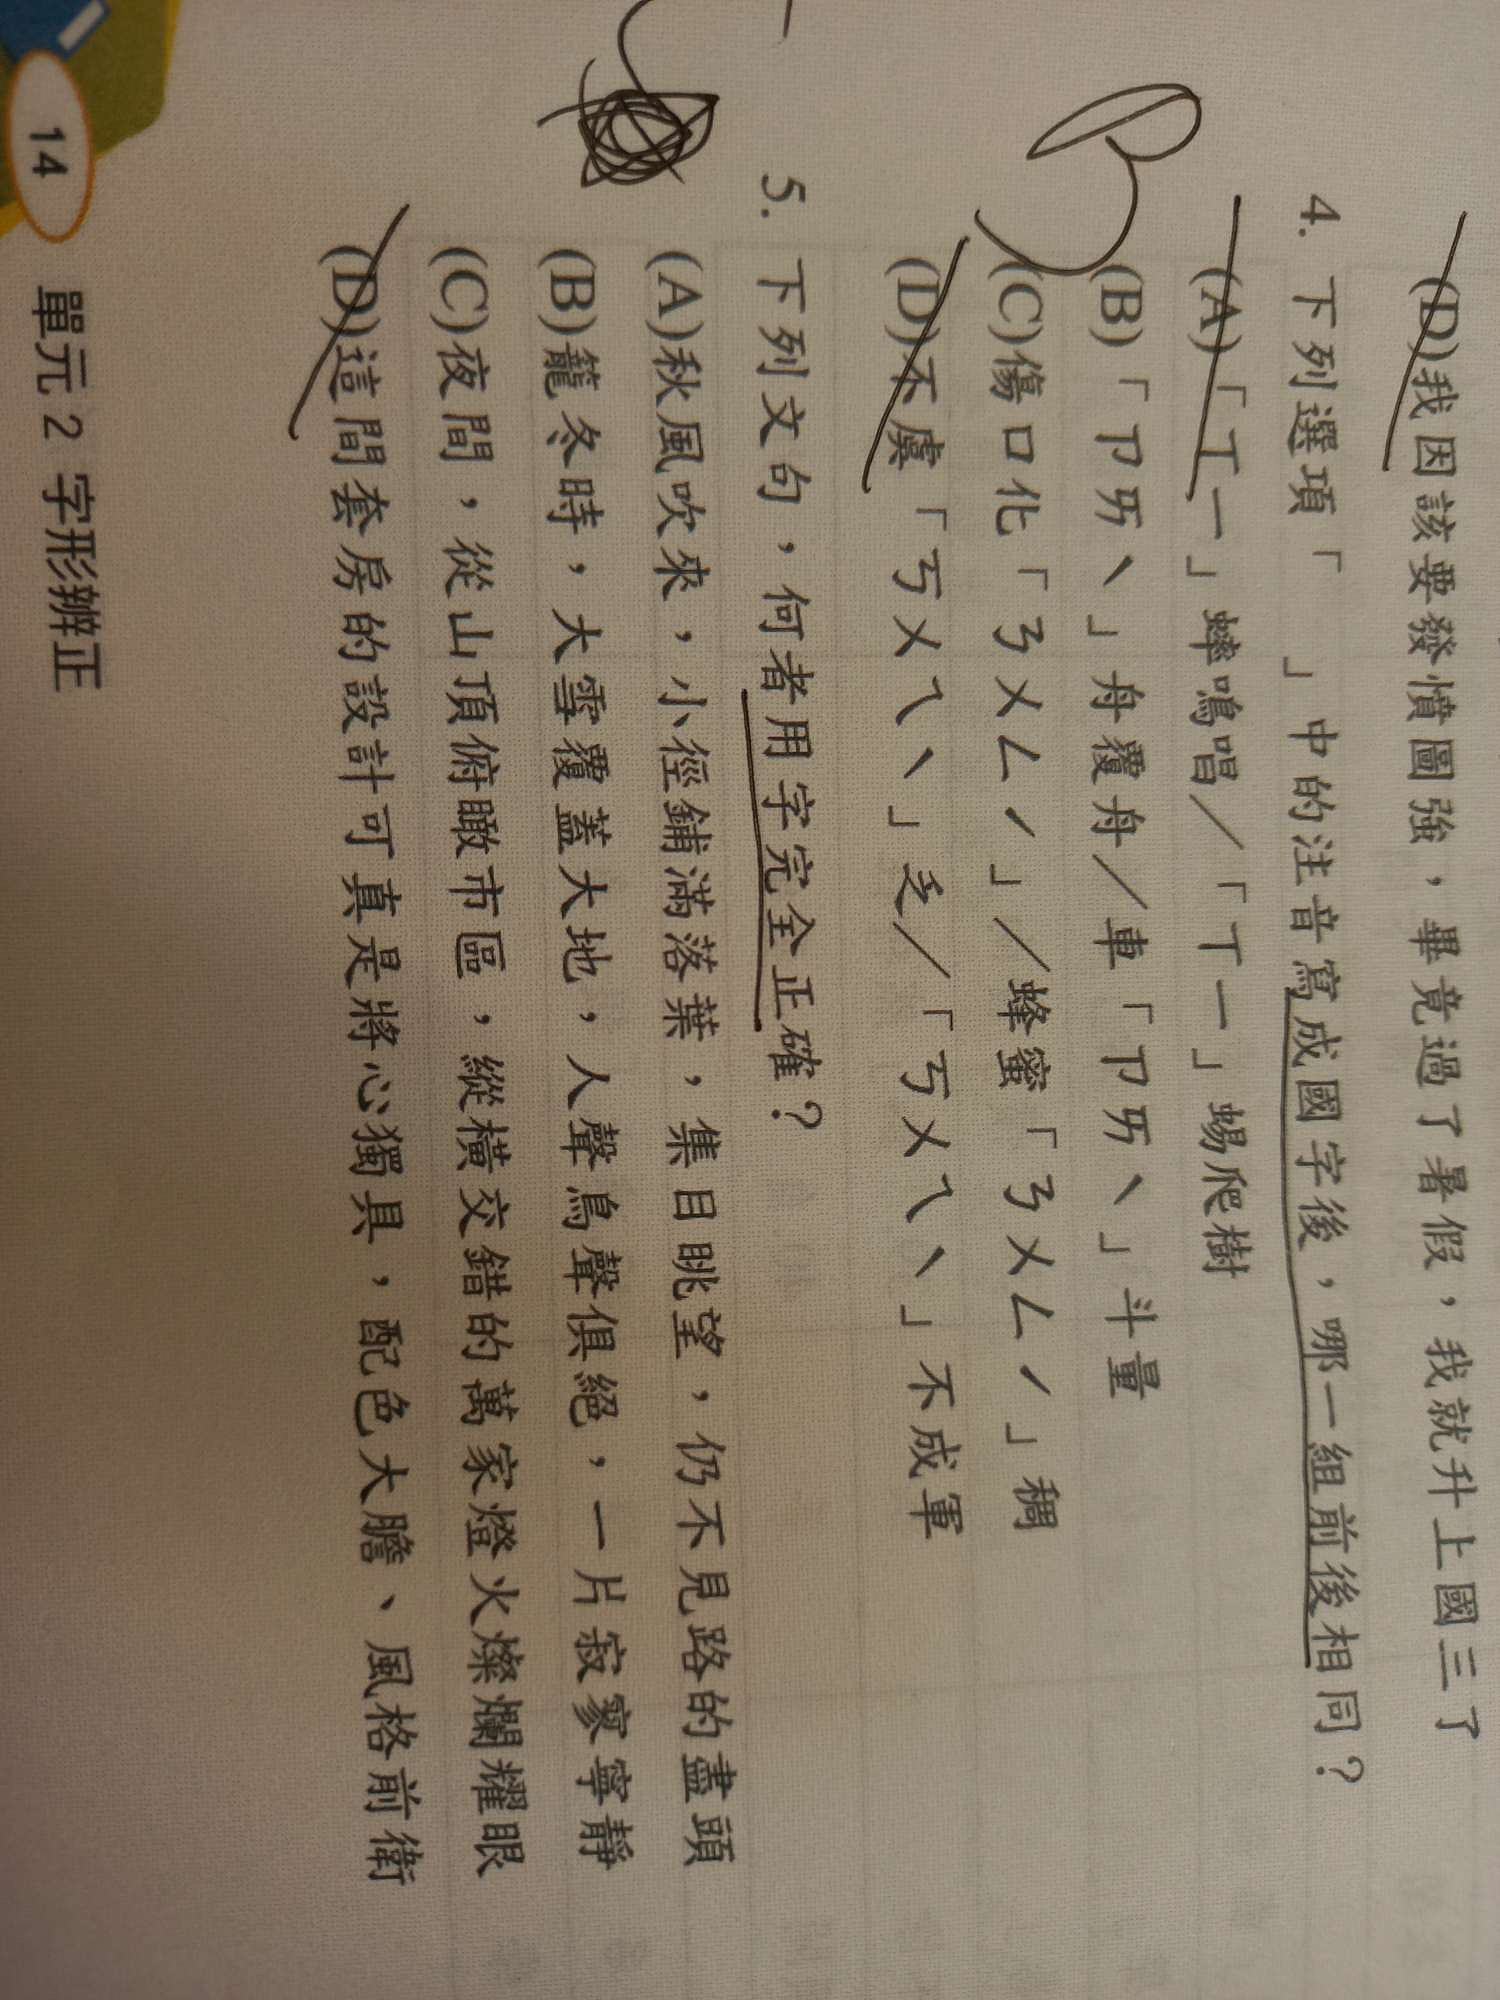 (D)我因該要發憤圖強，畢竟過了暑假，我就升上國三了
4. 下列選項「　」中的注音寫成國字後，哪一組前後相同？
(A)「ㄒㄧ」蟀鳴唱／「ㄒㄧ」蜴爬樹
(B)「ㄗㄞˋ」舟覆舟／車「ㄗㄞˋ」斗量
(C)傷口化「ㄋㄨㄥˊ」／蜂蜜「ㄋㄨㄥˊ」稠
(D)不虞「ㄎㄨㄟˋ」乏／「ㄎㄨㄟˋ」不成軍
B
5. 下列文句，何者用字完全正確？
(A)秋風吹來，小徑鋪滿落葉，集目眺望，仍不見路的盡頭
(B)籠冬時，大雪覆蓋大地，人聲鳥聲俱絕，一片寂寥寧靜
(C)夜間，從山頂俯瞰市區，縱橫交錯的萬家燈火燦爛耀眼
(D)這間套房的設計可真是將心獨具，配色大膽、風格前衛
14 單元 2 字形辨正